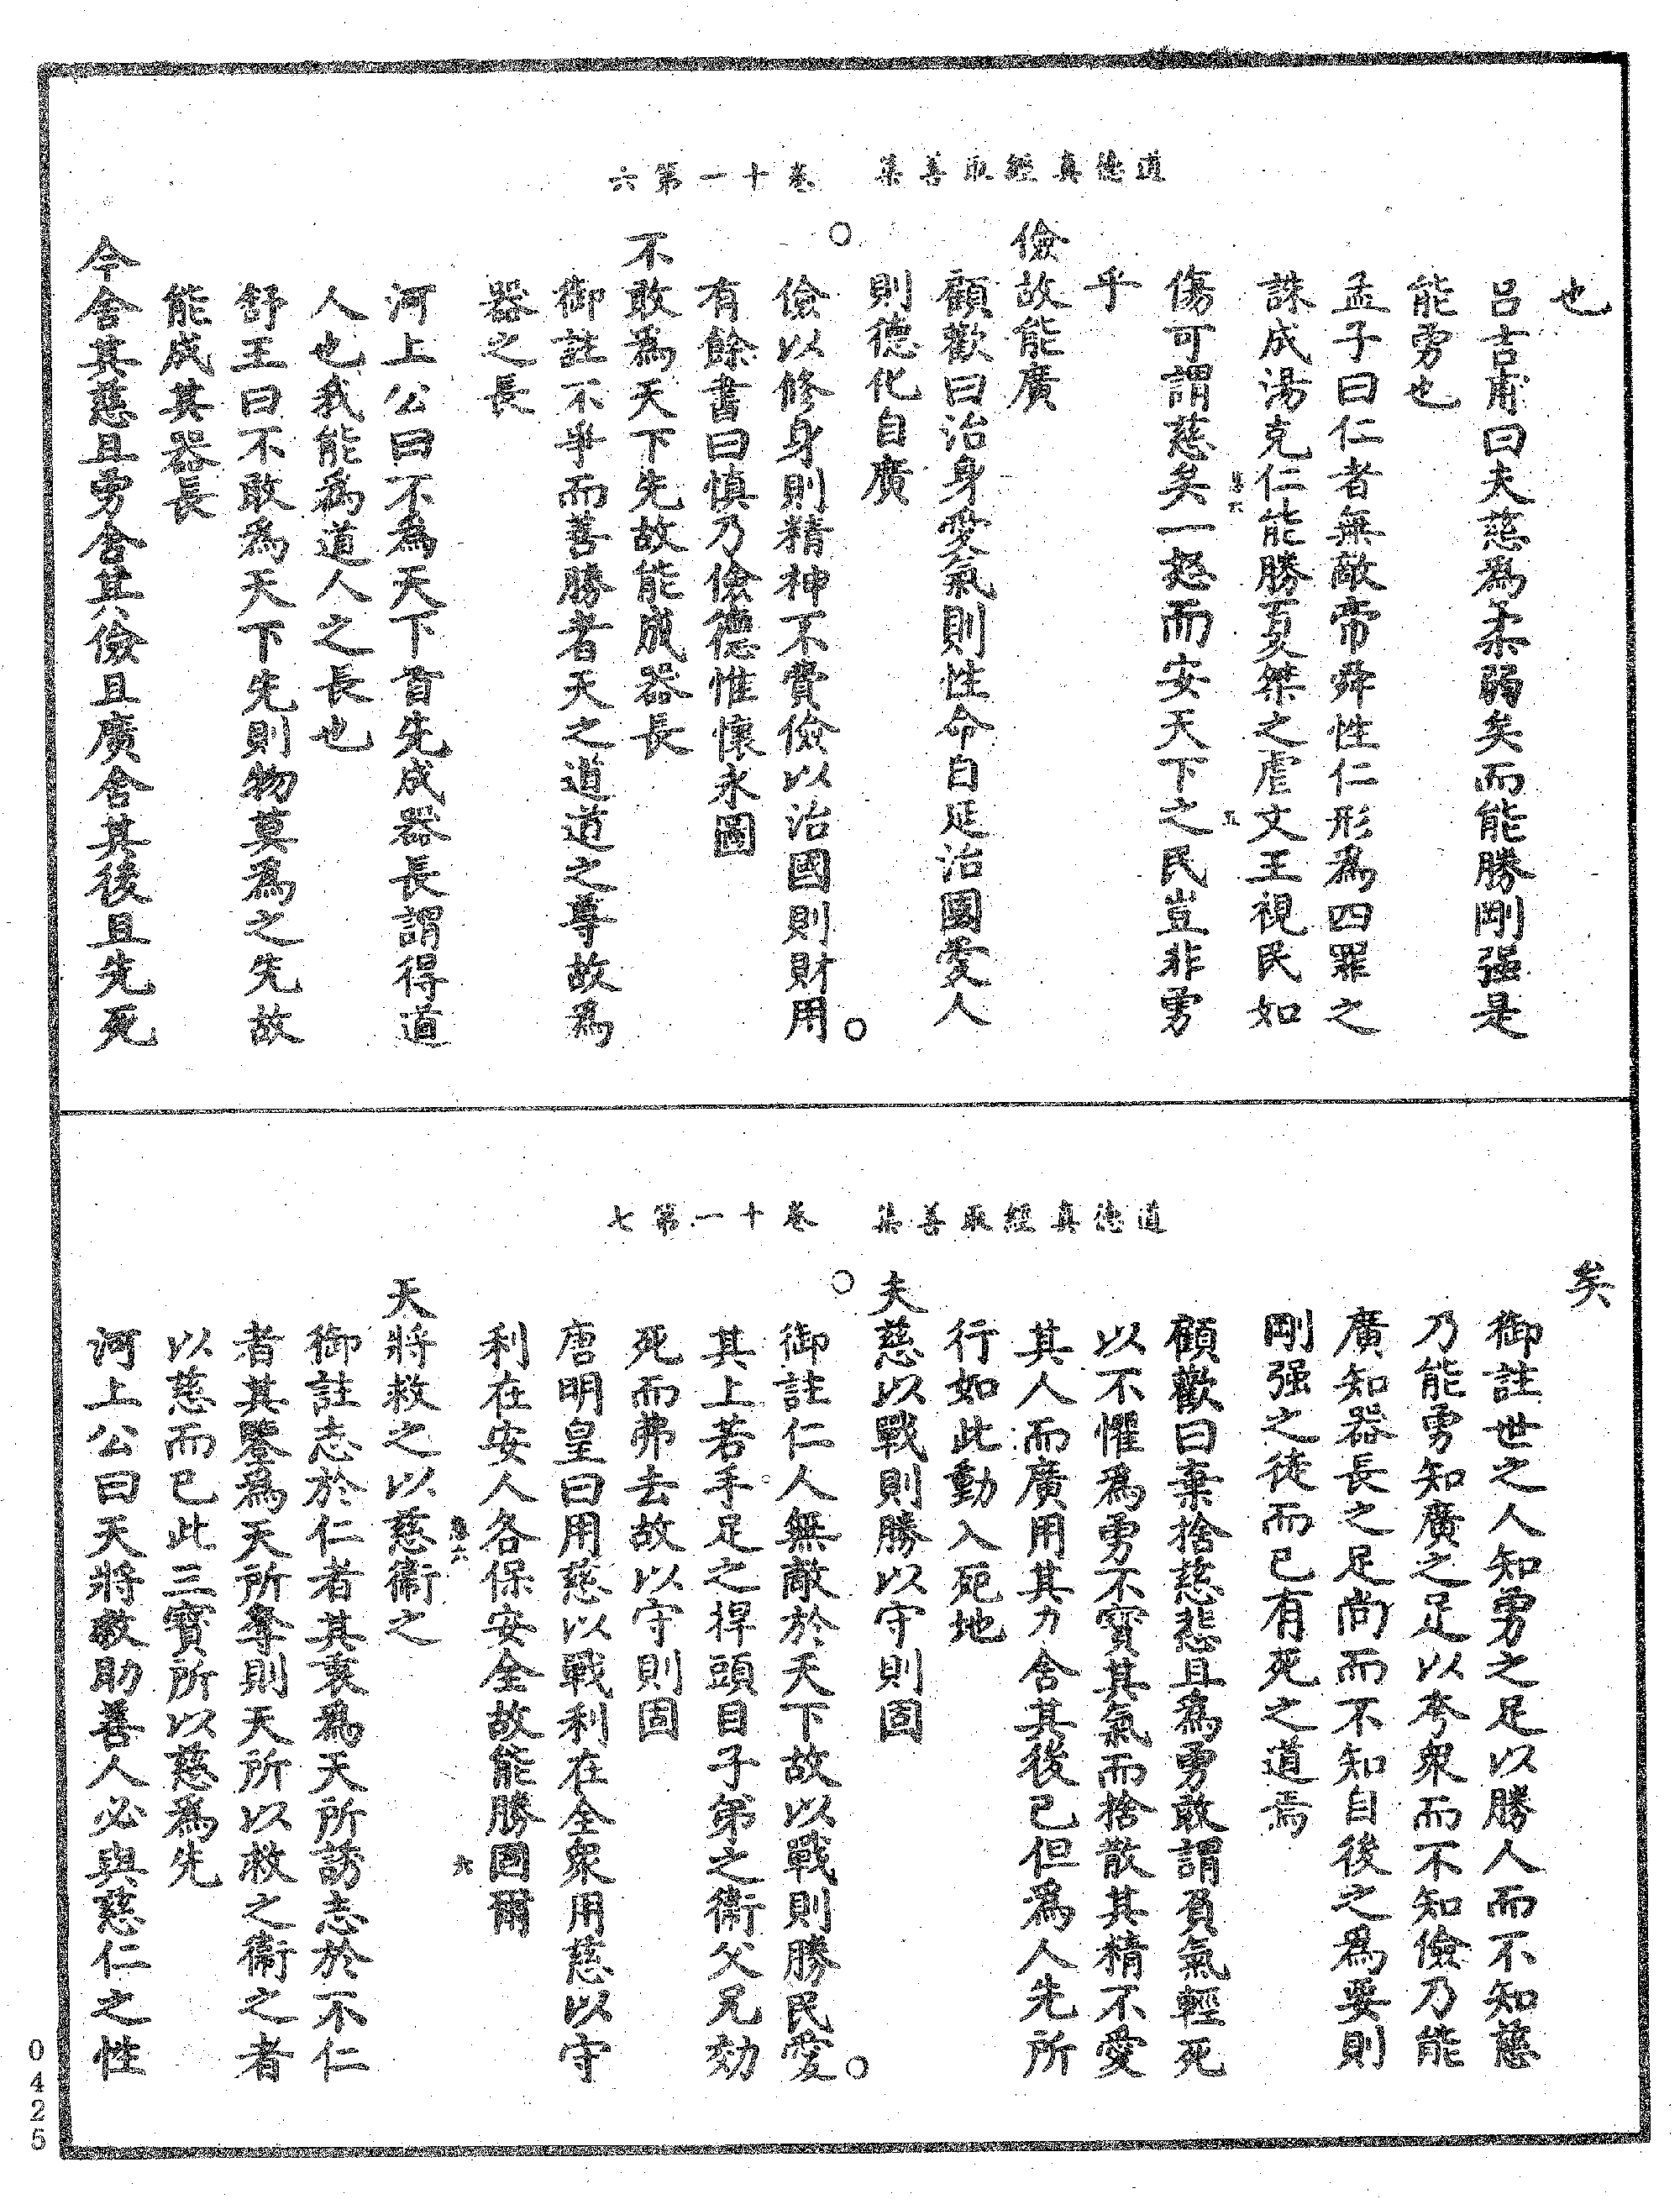 道德真經取善集　卷十一第六
也
呂吉甫曰夫慈為柔弱矣而能勝剛强是
能勇也
孟子曰仁者無敵帝舜性仁形為四罪之
誅成湯克仁能勝夏桀之虐文王視民如
傷可謂慈矣一怒而安天下之民豈非勇
乎
儉故能廣
顧歡曰治身愛氣則性命自延治國愛人
則德化自廣
儉以修身則精神不費儉以治國則財用
有餘書曰慎乃儉德惟懷永圖
不敢為天下先故能成器長
御註不爭而善勝者天之道道之尊故為
器之長
河上公曰不為天下首先成器長謂得道
人也我能為道人之長也
舒王曰不敢為天下先則物莫為之先故
能成其器長
今舍其慈且勇舍其儉且廣舍其後且先死
五
道德真經取善集　卷十一第七
矣
御註世之人知勇之足以勝人而不知慈
乃能勇知廣之足以夸衆而不知儉乃能
廣知器長之足尚而不知自後之為要則
剛强之徒而已有死之道焉
顧歡曰棄捨慈悲且為勇敢謂負氣輕死
以不懼為勇不寶其氣而捨散其精不愛
其人而廣用其力舍其後己但為人先所
行如此動入死地
夫慈以戰則勝以守則固
御註仁人無敵於天下故以戰則勝民愛
其上若手足之捍頭目子弟之衛父兄効
死而弗去故以守則固
唐明皇曰用慈以戰利在全衆用慈以守
利在安人各保安全故能勝固爾
天將救之以慈衛之
御註志於仁者其衷為天所誘志於不仁
者其鑒為天所奪則天所以救之衛之者
以慈而已此三寶所以慈為先
河上公曰天將救助善人必與慈仁之性
六
0425